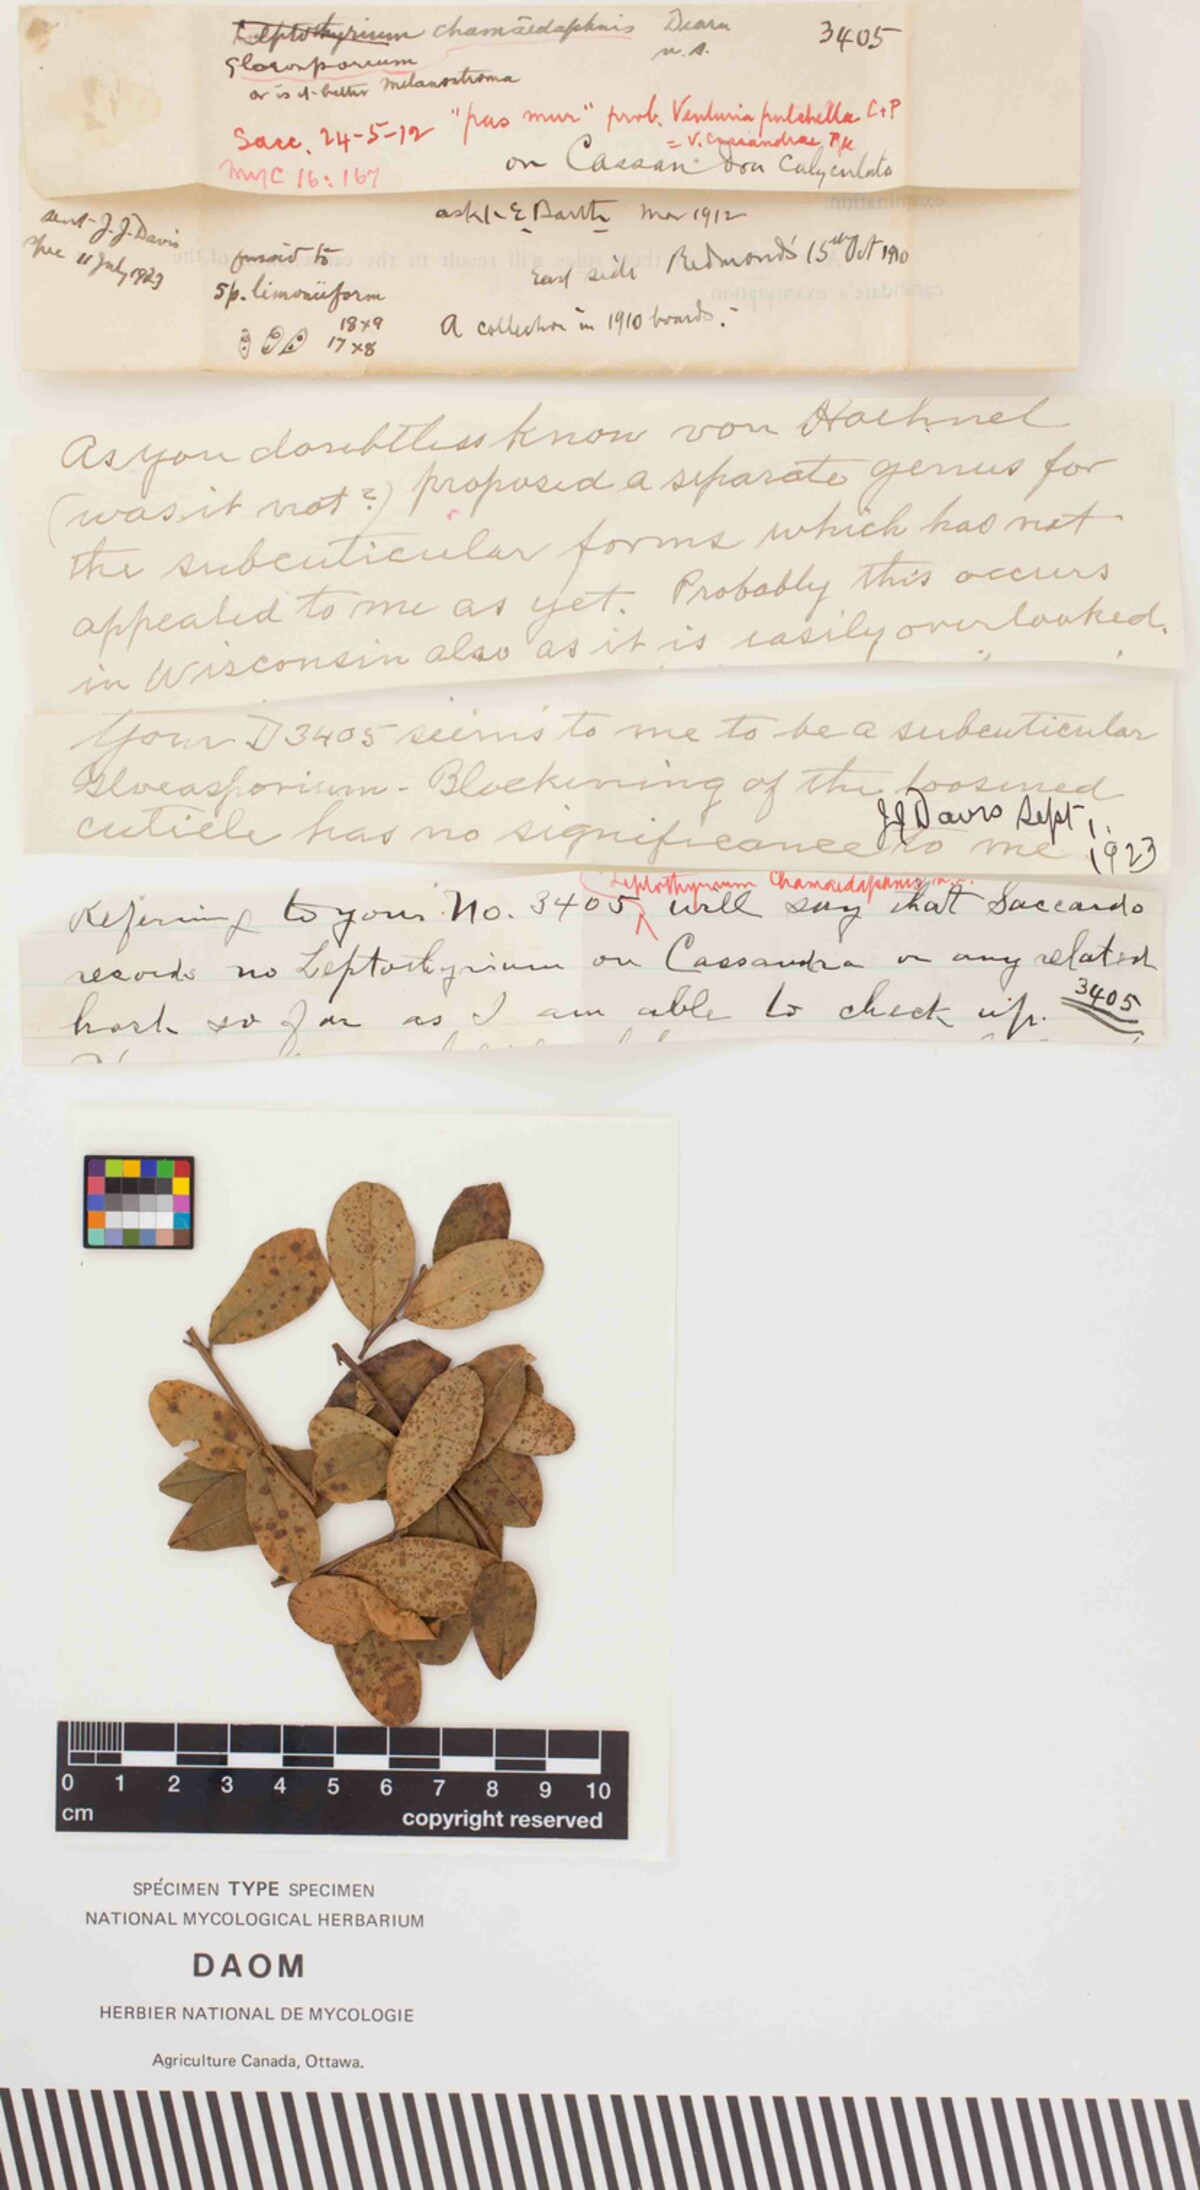 Leptothyrium chamaedaphnis Dearn 3405
Gloeosporium n.s.
or is it better Melanostroma
Sacc. 24-5-12 "pas mur" prob. Venturia pulchella C+P
= V. Cassandrae Pk
Myc 16:167
on Cassandra Calyculata
sent J.J. Davis
spec 11 July 1923
askd E Barth Mar 1912
fusoid to
sp. limoniiform
18x9
17x8
East side Redmonds 15th Oct 1910
A collection in 1910 boards.
As you doubtless know von Hoehnel
(was it not?) proposed a separate genus for
the subcuticular forms which has not
appealed to me as yet. Probably this occurs
in Wisconsin also as it is easily overlooked.
Your D 3405 seems to me to be a subcuticular
Gloeosporium - Blackening of the loosened
cuticle has no significance to me
JJ Davis Sept 1.
1923
Leptothyrium Chamaedaphnis n.s.
Referring to your No. 3405 will say that Saccardo
records no Leptothyrium on Cassandra or any related
host so far as I am able to check up.
3405
0 1 2 3 4 5 6 7 8 9 10
cm copyright reserved
SPÉCIMEN TYPE SPECIMEN
NATIONAL MYCOLOGICAL HERBARIUM
DAOM
HERBIER NATIONAL DE MYCOLOGIE
Agriculture Canada, Ottawa.